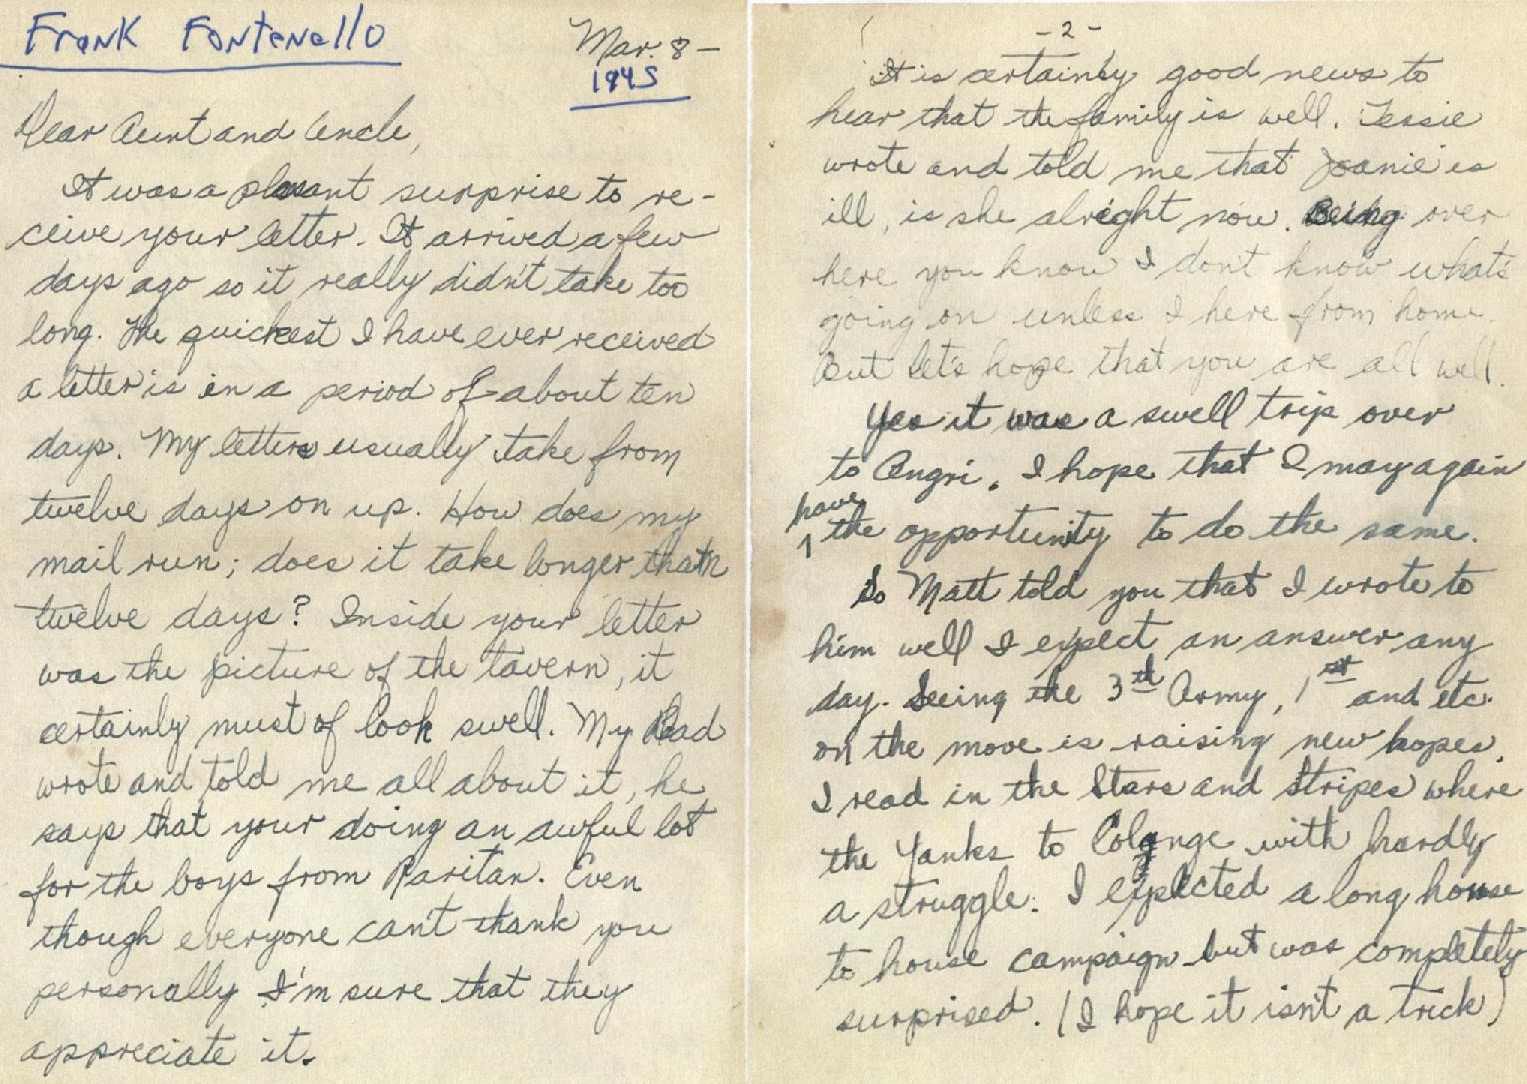 Frank Fontenello
Mar. 8 -
1945
Dear Aunt and Uncle,
It was a pleasant surprise to re-
ceive your letter. It arrived a few
days ago so it really didn't take too
long. The quickest I have ever received
a letter is in a period of about ten
days. My letters usually take from
twelve days on up. How does my
mail run; does it take longer than
twelve days? Inside your letter
was the picture of the tavern, it
certainly must of look swell. My Dad
wrote and told me all about it, he
says that your doing an awful lot
for the boys from Raritan. Even
though everyone can't thank you
personally I'm sure that they
appreciate it.
- 2 -
It is certainly good news to
hear that the family is well. Tessie
wrote and told me that Joanie is
ill, is she alright now. Being over
here you know I don't know what's
going on unless I here from home.
But let's hope that you are all well.
Yes it was a swell trip over
to Angri. I hope that I may again
have
the opportunity to do the same.
So Matt told you that I wrote to
him well I expect an answer any
day. Seeing the 3rd Army, 1st and etc.
on the move is raising new hopes.
I read in the Stars and Stripes where
the Yanks to Colonge with hardly
a struggle. I expected a long house
to house campaign but was completely
surprised. (I hope it isn't a trick)